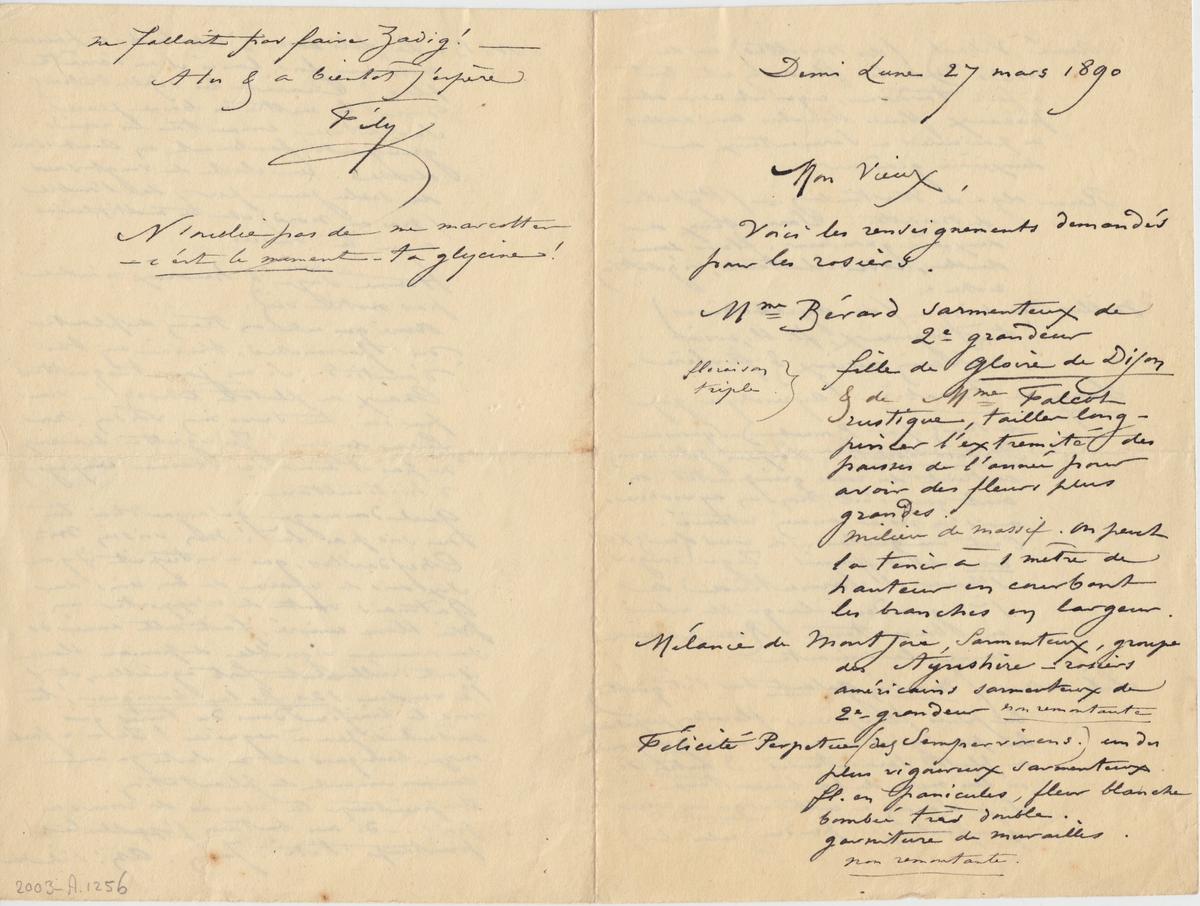 Demi Lune 27 mars 1890
Mon Vieux,
Voici les renseignements demandés
pour les rosiers.
Mme Bérard sarmenteux de
2e grandeur
floraison
triple }
fille de Gloire de Dijon
& de Mme Falcot
rustique, tailler long -
pincer l'extremité des
pousses de l'année pour
avoir des fleurs plus
grandes.
milieu de massif. On peut
la tenir à 1 mètre de
hauteur en courbant
les branches en largeur.
Mélanie de Montjoie, Sarmenteux, groupe
des Ayrshire - rosiers
américains sarmenteux de
2e grandeur non remontante
Félicité Perpetue (des Sempervirens.) un des
plus vigoureux sarmenteux
fl. en panicules, fleur blanche
bombée très double.
garniture de murailles.
non remontante.
ne fallait pas faire Zadig! —
A toi & a bientot j'espère
Fély
N'oublie pas de me marcotter
- c'est le moment - ta glycine!
2003-A.1256